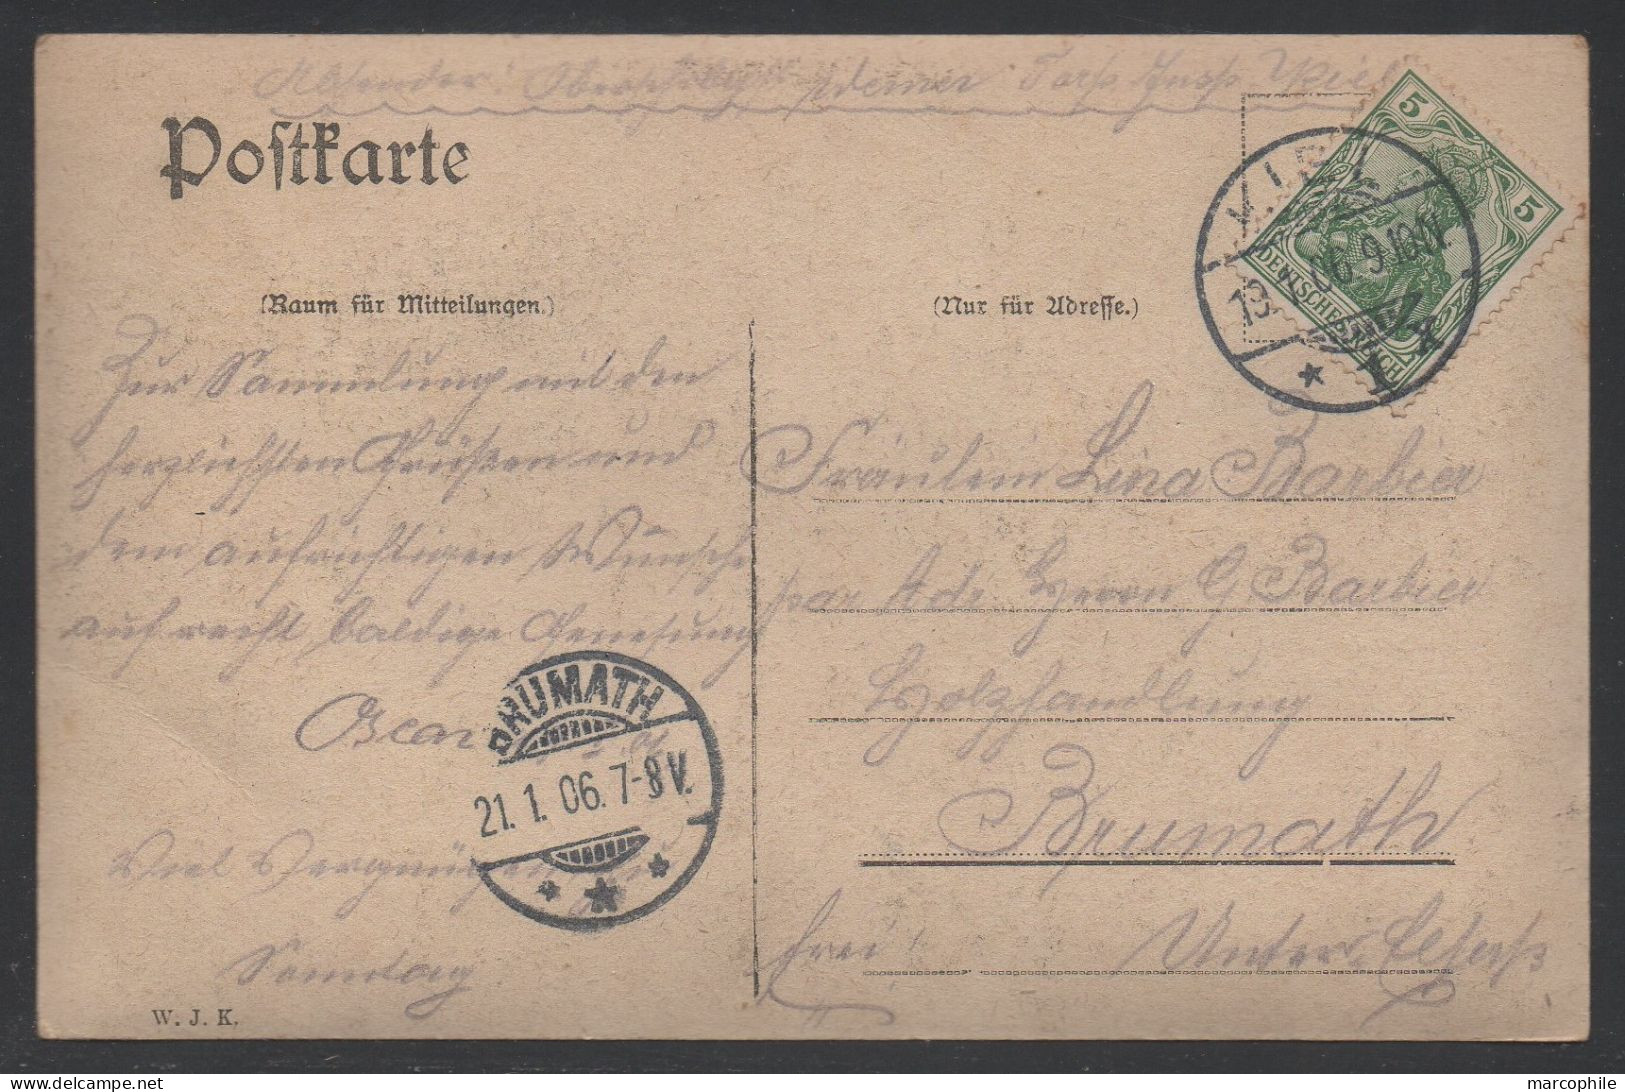 Absender:
Postkarte
5
5
DEUTSCHES REICH
KIEL
19. 06. 9-10 V.
* 1 *
(Raum für Mitteilungen.)
(Nur für Adresse.)
Zur Sammlung mit den
herzlichsten Grüßen und
dem aufrichtigen Wunsche
auf recht baldige Genesung
Oscar
BRUMATH
21. 1. 06. 7-8 V.
Viel Vergnügen
Sonntag
Fräulein Lina Barbier
par Adr. Herrn G Barbier
Holzhandlung
Brumath.
frei! Unter. Elsass
W. J. K.
marcophile